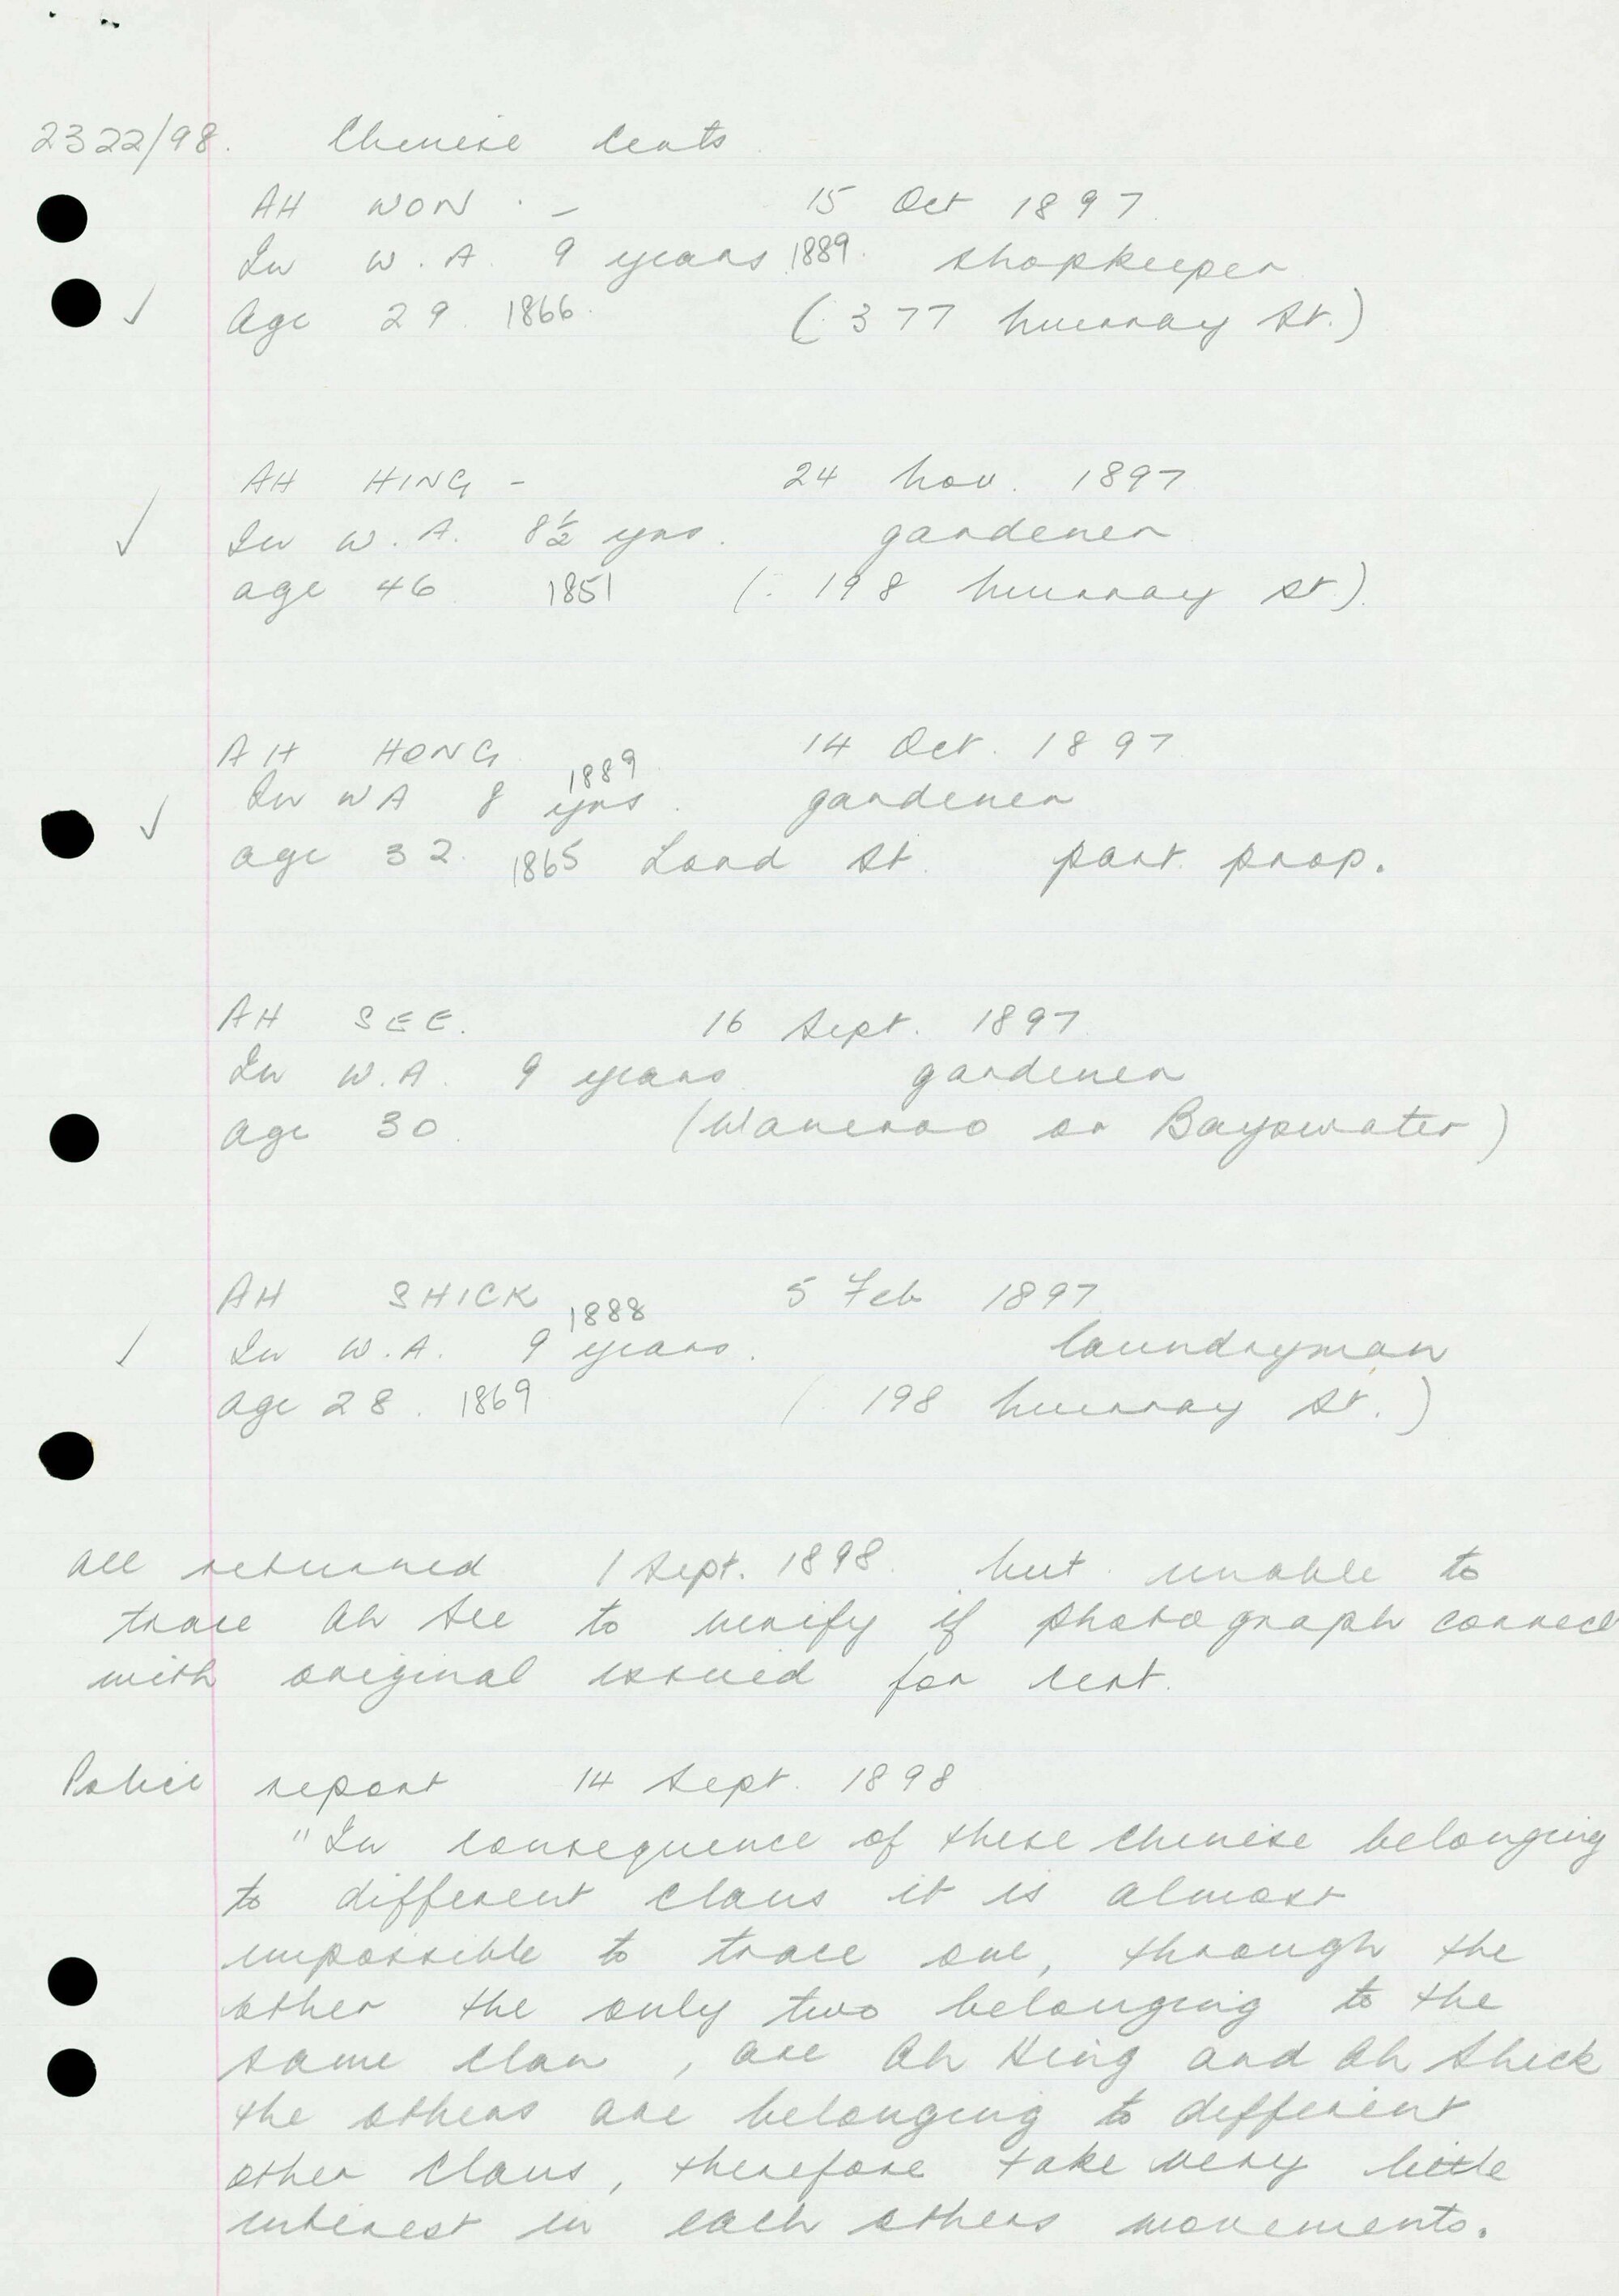 2322/98. Chinese Certs
AH WON - 15 Oct 1897.
In W.A. 9 years 1889. shopkeeper
Age 29. 1866. (377 Murray St.)
AH HING - 24 Nov. 1897
In W.A. 8½ yrs. gardener
age 46 1851 (198 Murray St).
AH HONG 14 Oct. 1897
1889
In WA 8 yrs. gardener
age 32. 1865 Lord St. part prop.
AH SEE. 16 Sept. 1897
In W.A. 9 years gardener
age 30. (Waneroo or Bayswater)
AH SHICK 5 Feb 1897
1888
In W.A. 9 years. laundryman
age 28. 1869 (198 Murray St.)
All returned 1 Sept. 1898. but unable to
trace Ah See to verify if photograph correct
with original issued for cert.
Police report 14 Sept. 1898
"In consequence of these Chinese belonging
to different clans it is almost
impossible to trace one, through the
other the only two belonging to the
same clan, are Ah Hing and Ah Shick
the others are belonging to different
other clans, therefore take very little
interest in each others movements.